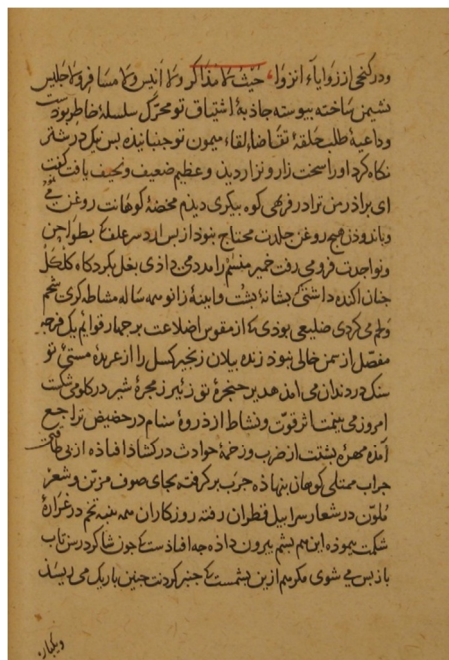 ودر کنجی از زوایاء انزوا، حَیْثُ لا مذاکر ولا انیس ولا مسافر ولا جلیس
نشیمن ساخته پیوسته جاذبهٔ اشتیاق تو محرّک سلسلهٔ خاطر بودست
وداعیهٔ طلب حلقهٔ تقاضاء لقاء میمون تو جنبانیده بس نیک در شتر
نکاه کرد اورا سخت زار ونزار دید وعظیم ضعیف ونحیف یافت کفت
ای براذر من ترا در فربهی کوه پیکری دیدم که کوهانت روغن
وباندوذن هیچ روغن جلدت محتاج نبوذ از بس ارد سر علف که بطواحن
ونواجذت فرو می رفت خمیر را مدد می داذی بغل بکرد کاه
جنان اکنده داشتی که بشانهٔ پشت واینهٔ زانو همه ساله مشاطه کری شحم
ولحم می کردی ضلیعی بوذی که از مقوس اضلاعت بر جهار قوایم یک
مفصّل از سمن خالی نبوذ زنده پیلان زنجیر کسل را از عربدهٔ مستی تو
سنک در دندان می امذ هدیر حنجرهٔ تو زئیر زمجرهٔ شیر در کلو می شکست
امروز می بینمت اثر قوّت ونشاط از ذروهٔ سنام در حضیض تراجع
آمذه مهرهٔ پشتت از ضرب وزخمهٔ حوادث در کشاذ افتاذه از بی طاقتی
جراب ممتلی کوهان بنهاذه جرب بر کرفته بجای صوف مزیّن وشعر
ملوّن در شعار سرابیل قطران رفته روزکاران همه پنبه تخم در غرارهٔ
شکمت بیموذه این هم پشم بیرون داذه جه افتاذست که جون شاکرد رسن تاب
باز پس می شوی مکر هم ازین پشمست که جنبر کردنت جنین باریک می ریسذ